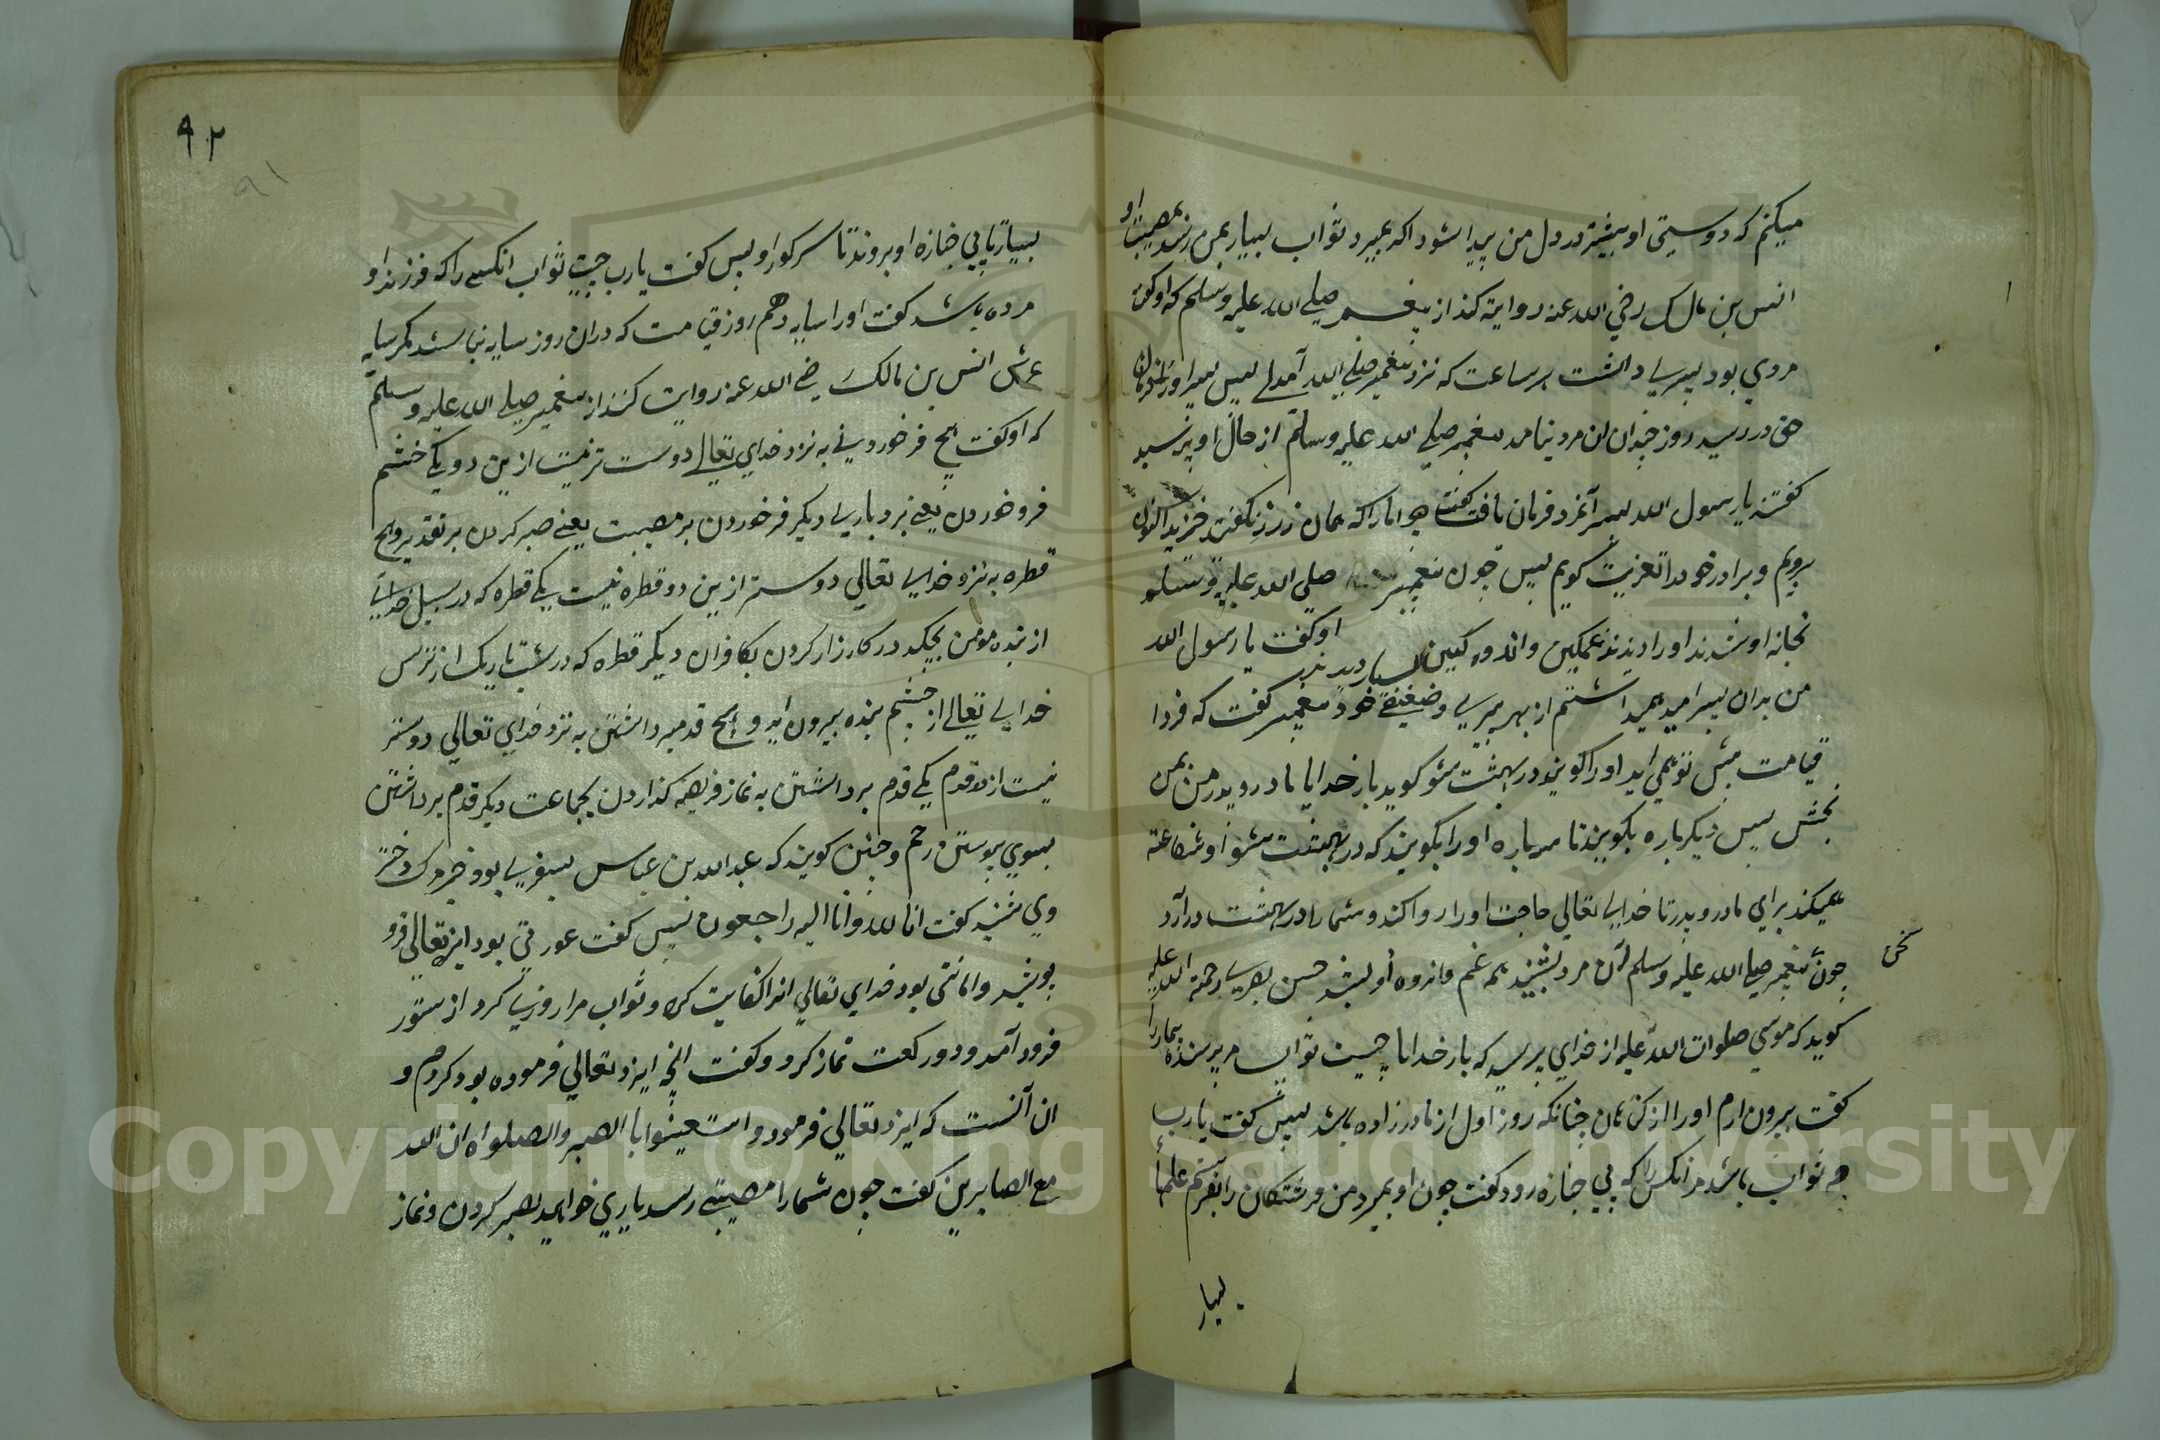 میکنم که دوستی او بیشتر در دل من پیدا شود اکر بمیرد ثواب بسیار بمن رسد بمصیبت او
انس بن مالک رضی الله عنه روایة کند از پیغمبر صلی الله علیه وسلم که او کفت
مردی بود پسری داشت هر ساعت که نزد پیغمبر صلی الله آمدی پس پسر او را فرمان
حق در رسید روز چندان ان مرد نیامد پیغمبر صلی الله علیه وسلم از حال او پرسید
کفتند یا رسول الله پسر آنمرد فرمان یافت کفت چرا مارا که همان زود نکفتند خیزید اکنون
برویم و برادر خود را تعزیت کویم پس چون پیغمبر صلی الله علیه وسلم
بخانه او شدند او را دیدند غمکین و اندوه کین بسیار دیدند او کفت یا رسول الله
من بدان پسر امید میداشتم از بهر پیری و ضعیفی خود پیغمبر کفت که فردا
قیامت پیش تو می اید او را کویند در بهشت شو کوید بار خدایا مادر و پدر من بمن
بخش پس دیکر باره بکویند تا سه باره او را بکویند که در بهشت شو او شفاعة
میکند برای مادر و پدر تا خدای تعالی حاجت او را روا کند و شما را در بهشت درآرد
چون پیغمبر صلی الله علیه وسلم آن مرد بشنید همه غم و اندوه او بشد حسن بصری رحمة الله علیه
کوید که موسی صلوات الله علیه از خدای پرسید که بار خدایا چیست ثواب مر پرسنده بیمار را
کفت بیرون ارم او را از کناهان چنانکه روز اول از مادر زاده باشد پس کفت یا رب
چه ثواب باشد مر انکس را که پی جنازه رود کفت چون او بمیرد من فرشتکان را بفرستم علمها
بسیار
۹۲
۹۱
بسیار تا پی جنازه او بروند تا سر کور او پس کفت یا رب چیست ثواب انکسی را که فرزند او
مرده باشد کفت او را سایه دهم روز قیامت که دران روز سایه نباشد مکر سایه
عرش انس بن مالک رضی الله عنه روایت کند از پیغمبر صلی الله علیه وسلم
که او کفت هیچ فرخوردنی به نزد خدای تعالی دوست تر نیست ازین دو یکی خشم
فروخوردن یعنی بردباری دیکر فرخوردن بر مصیبت یعنی صبر کردن بر تقدیر و هیچ
قطره به نزد خدای تعالی دوستر ازین دو قطره نیست یکی قطره که در سبیل خدای
از بنده مومن بچکد در کارزار کردن بکافران دیکر قطره که در شب تاریک از ترس
خدای تعالی از چشم بنده بیرون اید و هیچ قدم برداشتن به نزد خدای تعالی دوستر
نیست از دو قدم یکی قدم برداشتن به نماز فریضه کذاردن بجماعت دیکر قدم برداشتن
بسوی پیوستن رحم و چنین کویند که عبدالله بن عباس بسفری بود خبر مرک دختر
وی شنید کفت انا لله وانا الیه راجعون پس کفت عورتی بود ایزد تعالی فرو
پوشید و امانتی بود خدای تعالی انرا کفایت کرد و ثواب مرا روزی کرد از ستور
فرود آمد و دو رکعت نماز کرد و کفت انچه ایزد تعالی فرموده بود کردم و
ان آنست که ایزد تعالی فرمود و استعینوا بالصبر والصلواة ان الله
مع الصابرین کفت چون شما را مصیبتی رسد یاری خواهید بصبر کردن و نماز
Copyright © King Saud University